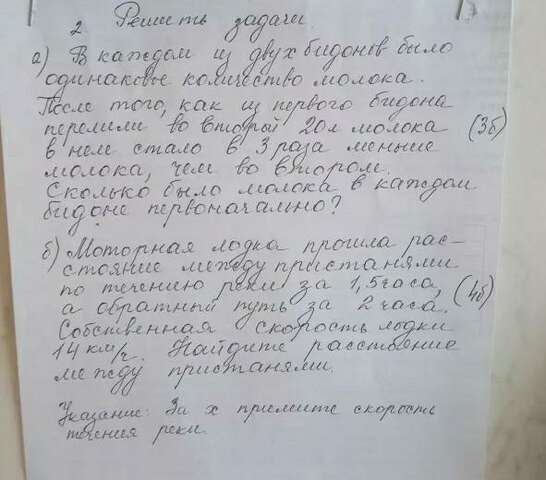 2 Решить задачи
а) В каждом из двух бидонов было
одинаковое количество молока.
После того, как из первого бидона
перелили во второй 20л молока (3б)
в нем стало в 3 раза меньше
молока, чем во втором.
Сколько было молока в каждом
бидоне первоначально?
б) Моторная лодка прошла рас-
стояние между пристанями
по течению реки за 1,5 часа,
а обратный путь за 2 часа. (4б)
Собственная скорость лодки
14 км/ч. Найдите расстояние
между пристанями.
Указание: За х примите скорость
течения реки.